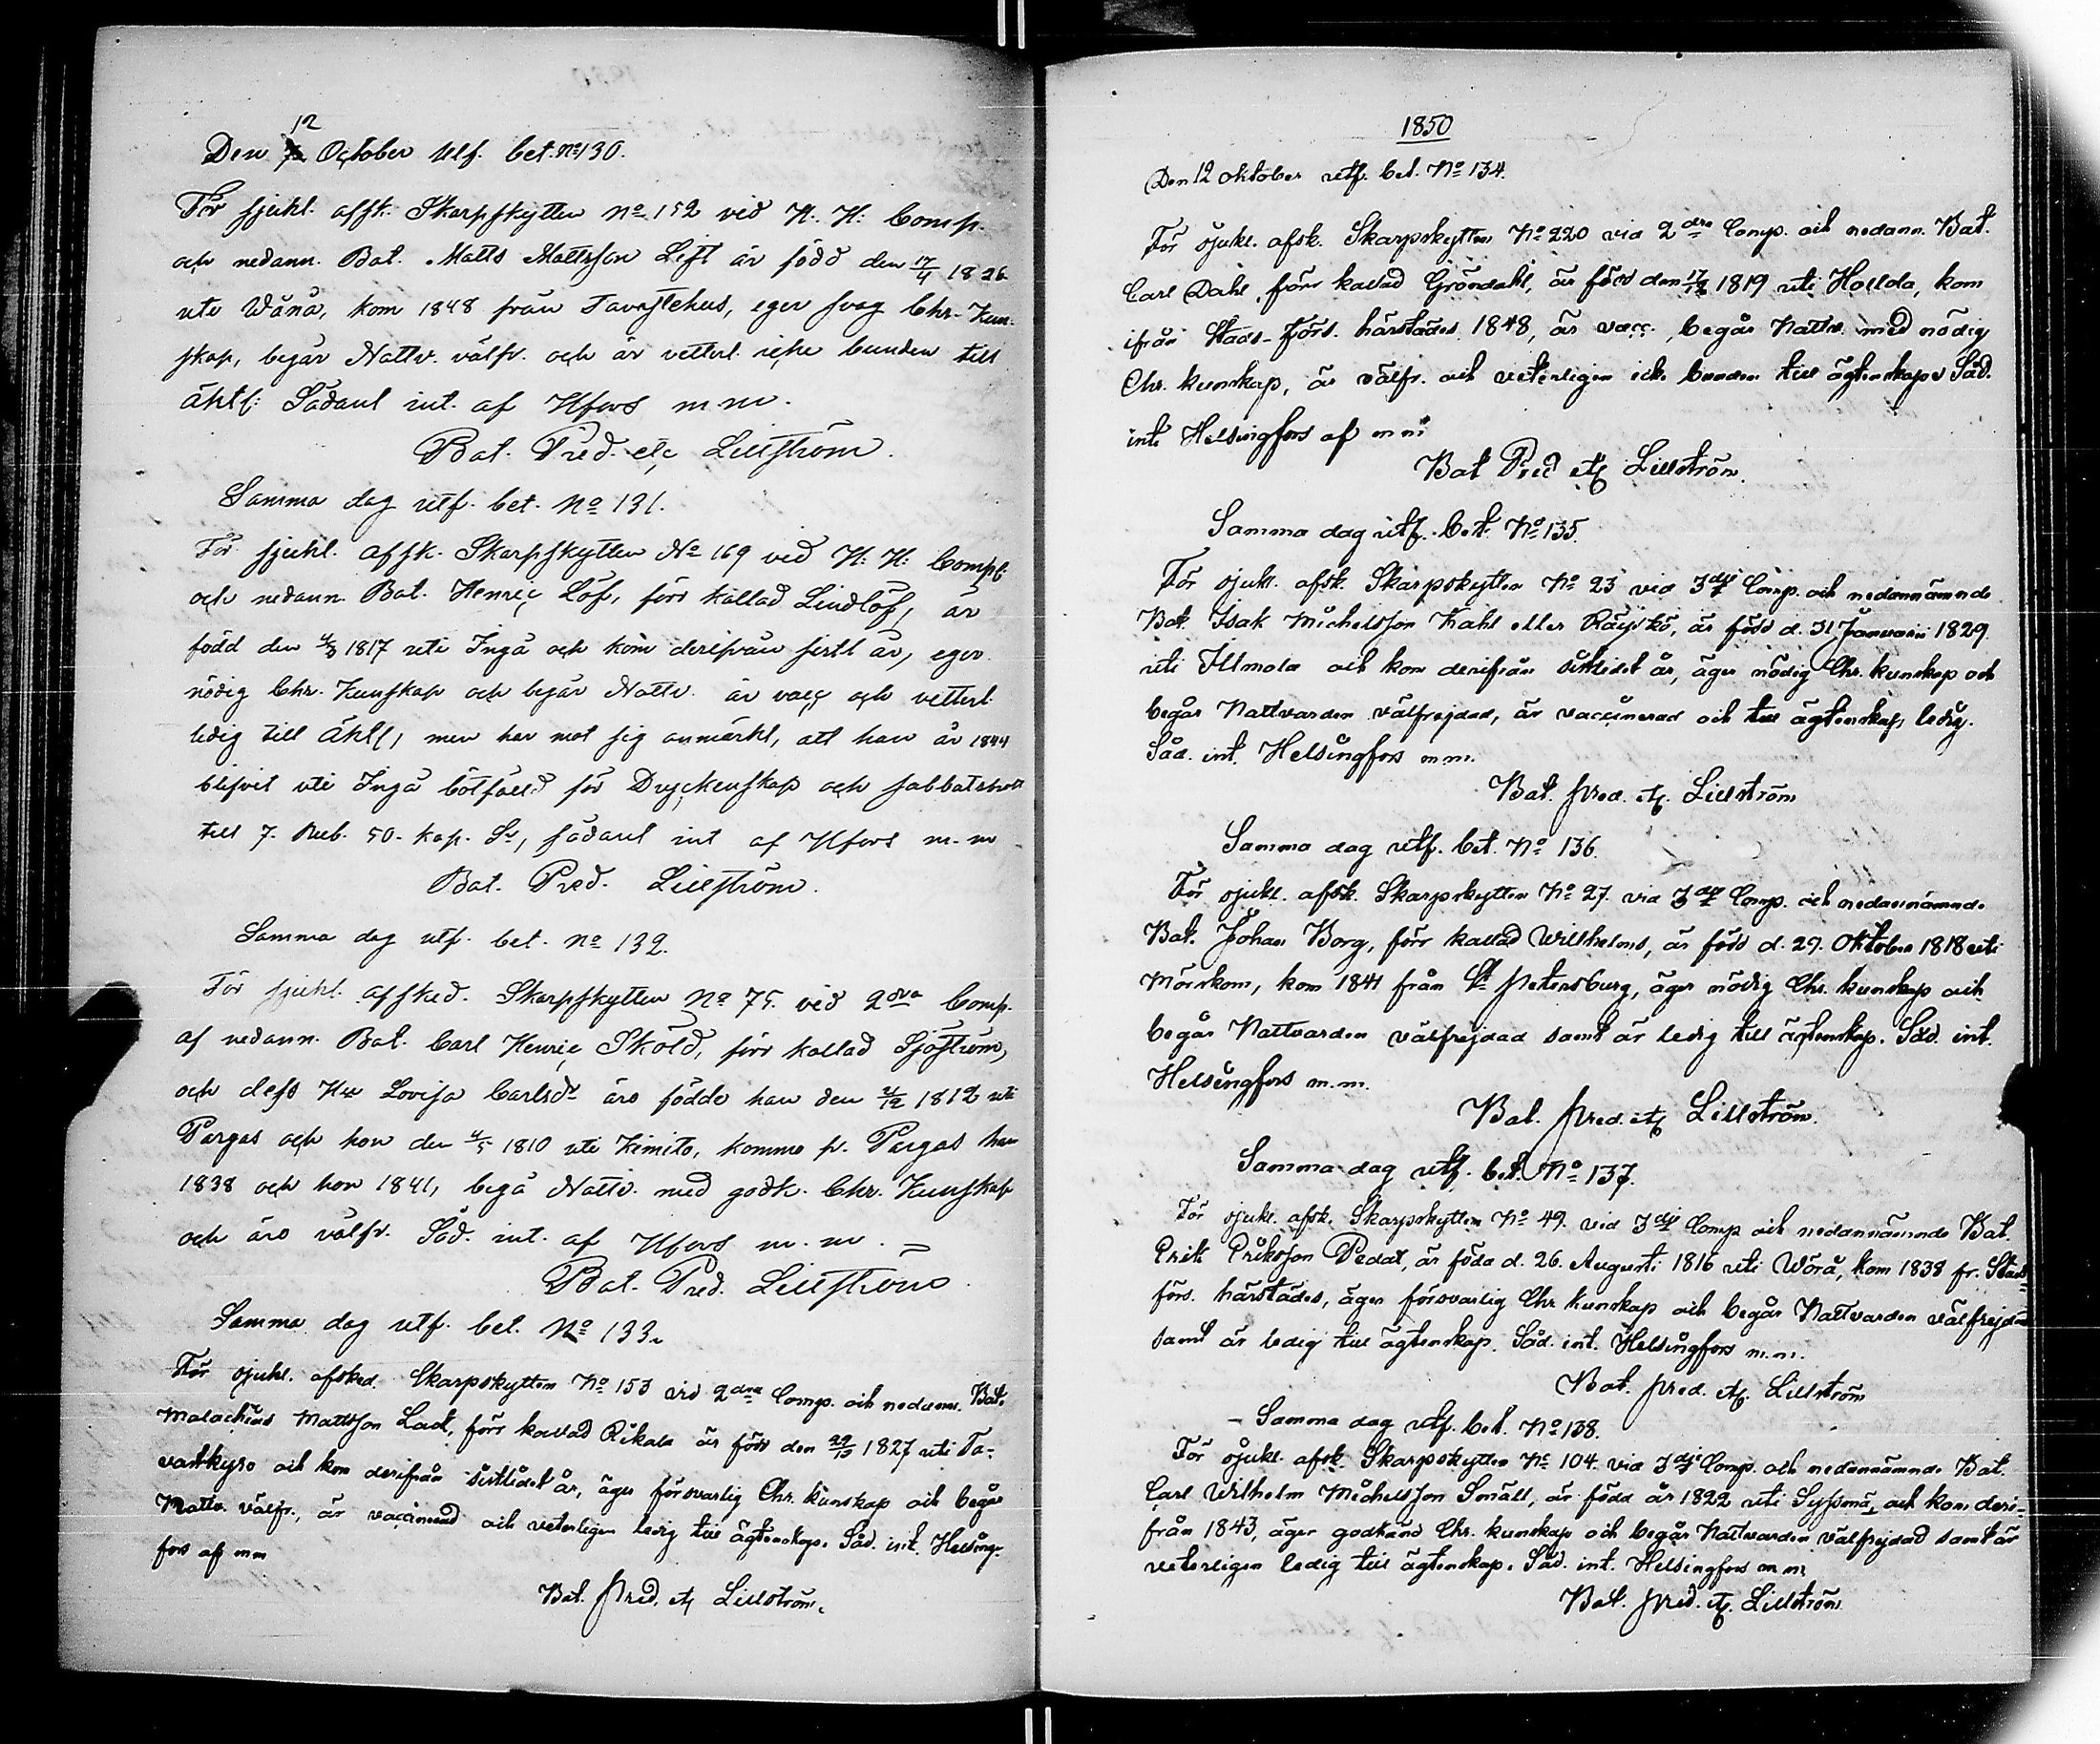 12
Den October Utf. bet. No 130.
För sjukl. afsk. Skarpskytten No 152 vid H. H: Comp.
och nedann. Bat. Matts Mattsson Lift är född den 17/4 1826
uti Wånå, kom 1848 från Tavastehus, eger svag Chr. Kun-
skap, begår Nattv. välfr. och är vetterl. icke bunden till
äktf: Sådant int. af Hfors m m.
Bat. Pred. etc Lillström.
Samma dag utf. bet. No 131.
För sjukl. afsk. Skarpskytten No 169 vid H. H: Comp:
och nedann. Bat. Henric Löf, förr kallad Lindlöf, är
född den 1817 uti Ingå och kom derifrån sistl år, eger
nödig Chr. Kunskap och begår Nattv. är vacc och vetterl.
ledig till äktf, men har mot sig anmärkt, att han år 1844
blifvit uti Ingå bötfälld för Dryckenskap och sabbatsbrott
till 7. Rub. 50. kop. Sr, sådant int af Hfors m. m
Bat. Pred. Lillström.
Samma dag utf. bet. No 132.
För sjukl. afsked. Skarpskytten No 75. vid 2dra Comp.
af nedann. Bat. Carl Henric Sköld, förr kallad Sjöström,
och dess Hu Lovisa Carlsdr äro födde han den 1812 uti
Pargas och hon den 1810 uti Kimito, komme fr. Pargas han
1838 och hon 1841, begå Nattv. med godk. Chr. Kunskap
och äro välfr. Såd. int. af Hfors m. m.
Bat. Pred. Lillström
Samma dag utf. bet. No 133.
För sjukl. afsked. Skarpskytten No 153 vid 2dra Comp. och nedann. Bat.
Malachias Mattsson Last, förr kallad Rikala är född den 1827 uti Ta-
vastkyro och kom derifrån sistlidet år, äger försvarlig Chr. kunskap och begår
Nattv. välfr., är vaccinerad och veterligen ledig till ägtenskap. Såd. int. Helsing-
fors af m m
Bat. pred. etc Lillström.
1850
Den 12 Oktober utf. bet. No 134.
För sjukl. afsk. Skarpskytten No 220 vid 2dra Comp. och nedann. Bat.
Carl Dahl, förr kallad Gröndahl, är född den 1819 uti Hollola, kom
ifrån Stads-förs. härstädes 1848, är vacc., begår Nattv. med nödig
Chr. kunskap, är välfr. och veterligen icke bunden till ägtenskap. Såd.
int. Helsingfors af m m
Bat Pred etc Lillström.
Samma dag utf. bet. No 135.
För sjukl. afsk. Skarpskytten No 23 vid 3dje Comp. och nedannämnde
Bat. Isak Michelsson Kahl eller Räyskö, är född d. 31 Januarii 1829
uti Ilmola och kom derifrån sistlidet år, äger nödig Chr. kunskap och
begår Nattvarden välfrejdad, är vaccinerad och till ägtenskap ledig.
Såd. int. Helsingfors m m.
Bat. pred. etc. Lillström
Samma dag utf. bet. No 136.
För sjukl. afsk. Skarpskytten No 27. vid 3dje Comp. och nedannämnde
Bat. Johan Borg, förr kallad Willhelms, är född d. 29. Oktober 1818 uti
Mörskom, kom 1841 från St Petersburg, äger nödig Chr. kunskap och
begår Nattvarden välfrejdad samt är ledig till ägtenskap. Såd. int.
Helsingfors m. m.
Bat. pred. etc Lillström.
Samma dag utf. bet. No 137.
För sjukl. afsk. Skarpskytten No 49. vid 3dje Comp och nedannämnde Bat.
Erik Eriksson Pedat, är född d. 26. Augusti 1816 uti Wörå, kom 1838 fr. Stads-
förs. härstädes, äger försvarlig Chr kunskap och begår Nattvarden välfrejdad
samt är ledig till ägtenskap. Såd. int. Helsingfors m. m.
Bat. pred. etc. Lillström
- Samma dag utf. bet. No 138.
För sjukl. afsk. Skarpskytten No 104. vid 3dje Comp. och nedannämnde Bat.
Carl Wilhelm Michelsson Smäll, är född år 1822 uti Sysmä, och kom deri-
från 1843, äger godkänd Chr. kunskap och begår Nattvarden välfrejdad samt är
veterligen ledig till ägtenskap. Såd. int. Helsingfors m m
Bat. pred. etc. Lillström